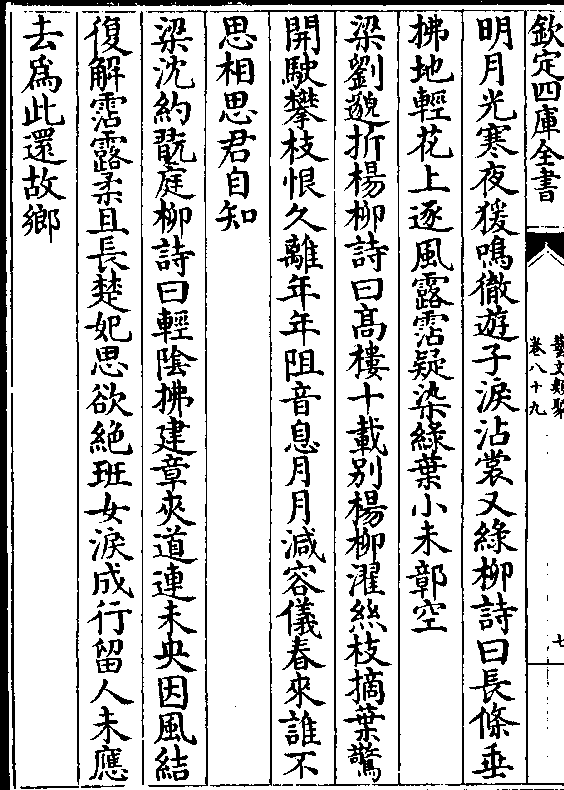 欽定四庫全書
藝文類聚
卷八十九
七
明月光寒夜猨鳴徹遊子淚沾裳又綠柳詩曰長條垂
拂地輕花上逐風露霑疑染綠葉小未鄣空
梁劉邈折楊柳詩曰高樓十載别楊柳濯絲枝摘葉驚
開駃攀枝恨久離年年阻音息月月減容儀春來誰不
思相思君自知
梁沈約翫庭柳詩曰輕陰拂建章夾道連未央因風結
復解霑露柔且長楚妃思欲絶班女淚成行留人未應
去為此還故鄉